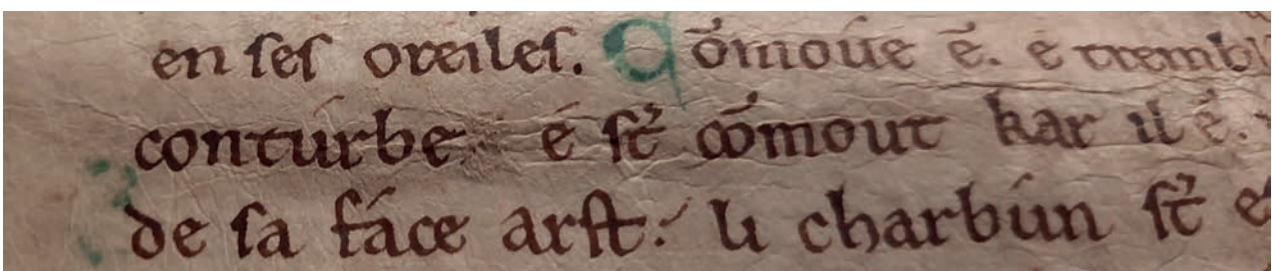 en ses oreiles. Cōmoúe ē. e trembl
conturbe é st̄ cōmout kar il é.
de sa fáce arst: li charbún st̄ e